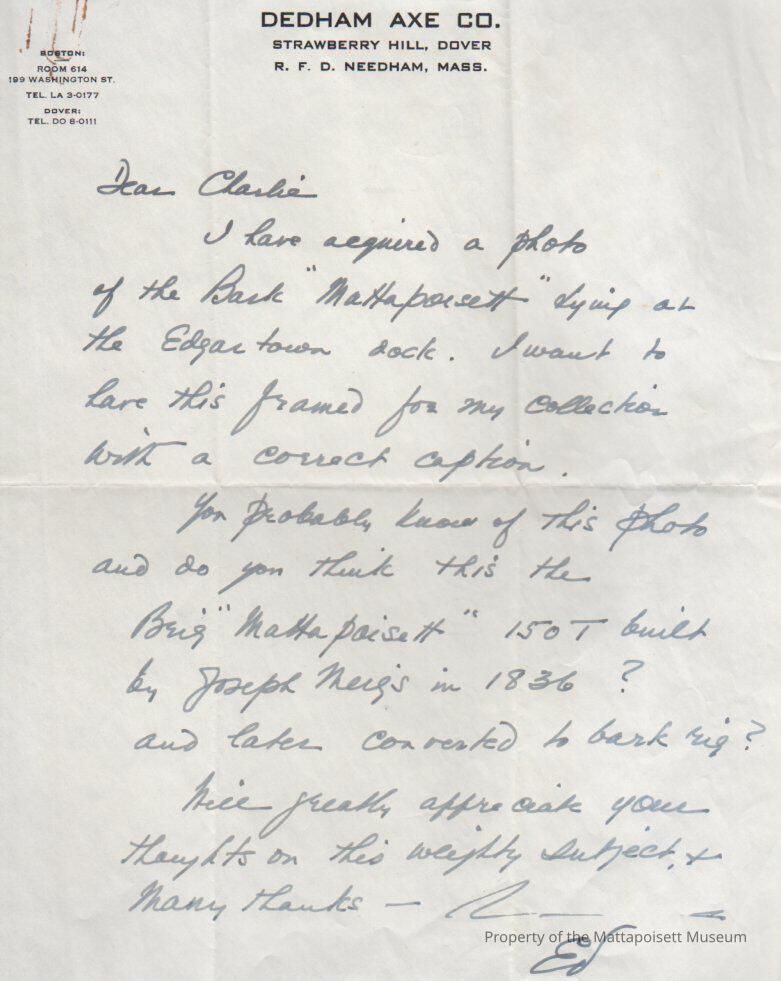 DEDHAM AXE CO.
STRAWBERRY HILL, DOVER
R. F. D. NEEDHAM, MASS.
BOSTON:
ROOM 614
199 WASHINGTON ST.
TEL. LA 3-0177
DOVER:
TEL. DO 8-0111
Dear Charlie
I have acquired a photo
of the Bark "Mattapoisett" lying at
the Edgartown dock. I want to
have this framed for my collection
with a correct caption.
You probably know of this photo
and do you think this the
Brig "Mattapoisett" 150 T built
by Joseph Meigs in 1836 ?
and later converted to bark rig?
Will greatly appreciate your
thoughts on this weighty subject. +
Many thanks —
Ed
Property of the Mattapoisett Museum